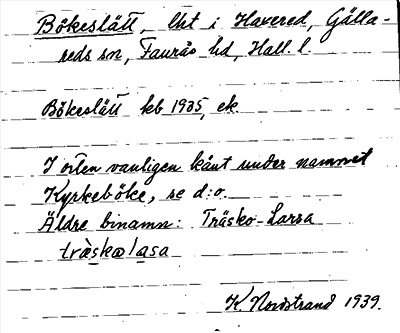 Bökeslätt, lht i Havered, Gälla-
reds sn, Faurås hd, Hall. l.
Bökeslätt kb 1935, ek.
I orten vanligen känt under namnet
Kyrkeböke, se d:o.
Äldre binamn: Träsko-Larsa
træskolasa
K. Nordstrand 1939.